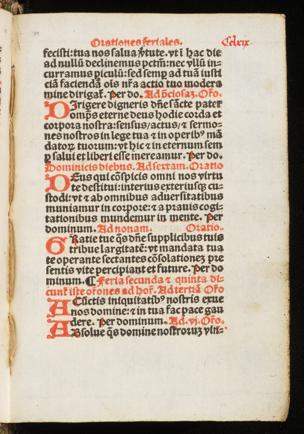 Orationes feriales. Cclxix
fecisti: tua nos salua v̓tute. vt i hac die
ad nullū declinemus pctm̄: nec vllū in
curramus ꝑiculū: sed semꝑ ad tuā iusti
ciā faciendā oīs nr̄a actio tuo modera
mine dirigat᷑. Per do. Ad ꝑciosaꝫ. Or̄o.
Dirigere digneris dn̄e sācte pater
om̄ps eterne deus hodie corda et
corpora nostra: sensus/actus/⁊ sermo-
nes nostros in lege tua ⁊ in operib⁹ mā
datoꝝ tuorum: vt hic ⁊ in eternum sem
ꝑ salui et liberi esse mereamur. Per do.
Dominicis diebus. Ad sextam. Oratio
Deus qui cōspicis omni nos virtu
te destitui: interius exteriusqꝫ cu-
stodi: vt ⁊ ab omnibus aduersitatibus
muniamur in corpore: ⁊ a prauis cogi-
tationibus mundemur in mente. Per
dominum. Ad nonam. Oratio.
Gratie tue q̄s dn̄e supplicibus tuis
tribue largitatē: vt mandata tua
te operante sectantes cōsolationeꝫ pre
sentis vite percipiant et future. Per do
minum. ¶ Feria secunda ⁊ quinta di-
cunt᷑ iste or̄ones ad hor᷑. Ad tertiā Or̄o
A cūctis iniquitatib⁹ nostris exue
nos domine: ⁊ in tua fac pace gau
dere. Per dominum. Ad .vj. Or̄o.
Absolue q̄s domine nostroꝝ vin-